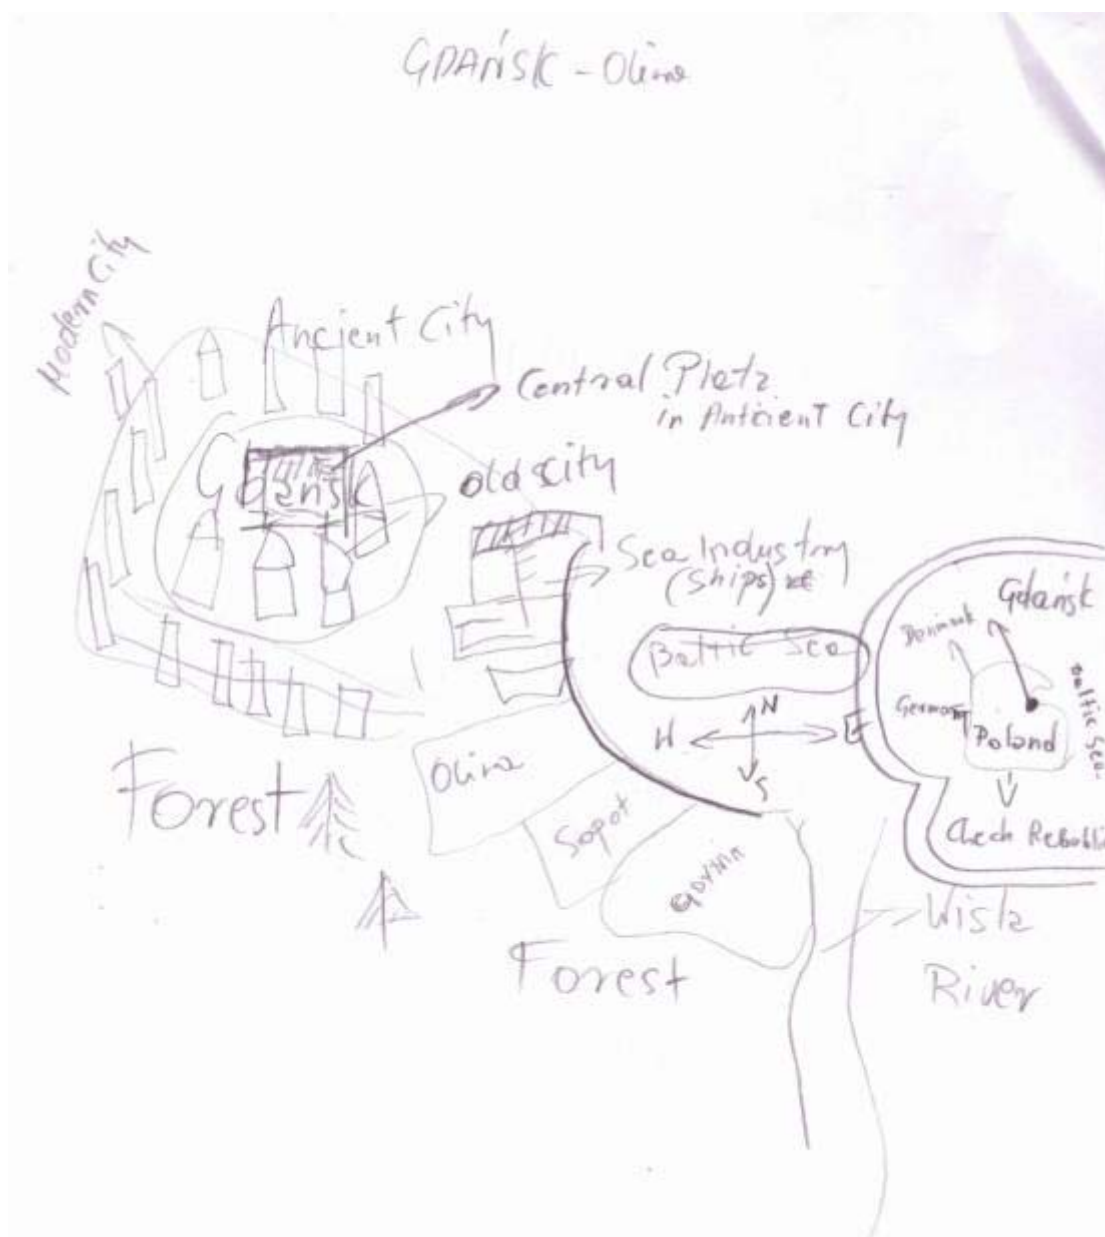 GDAŃSK - Oliwa
Modern City
Ancient City
Central Platz
in Antcient City
Gdansk
old city
Sea Industry
(ships)
Baltic Sea
N
W
E
S
Gdańsk
Denmark
Germany
Poland
Baltic Sea
Chech
Forest
Oliva
Sopot
Gdynia
Forest
Wisla
River